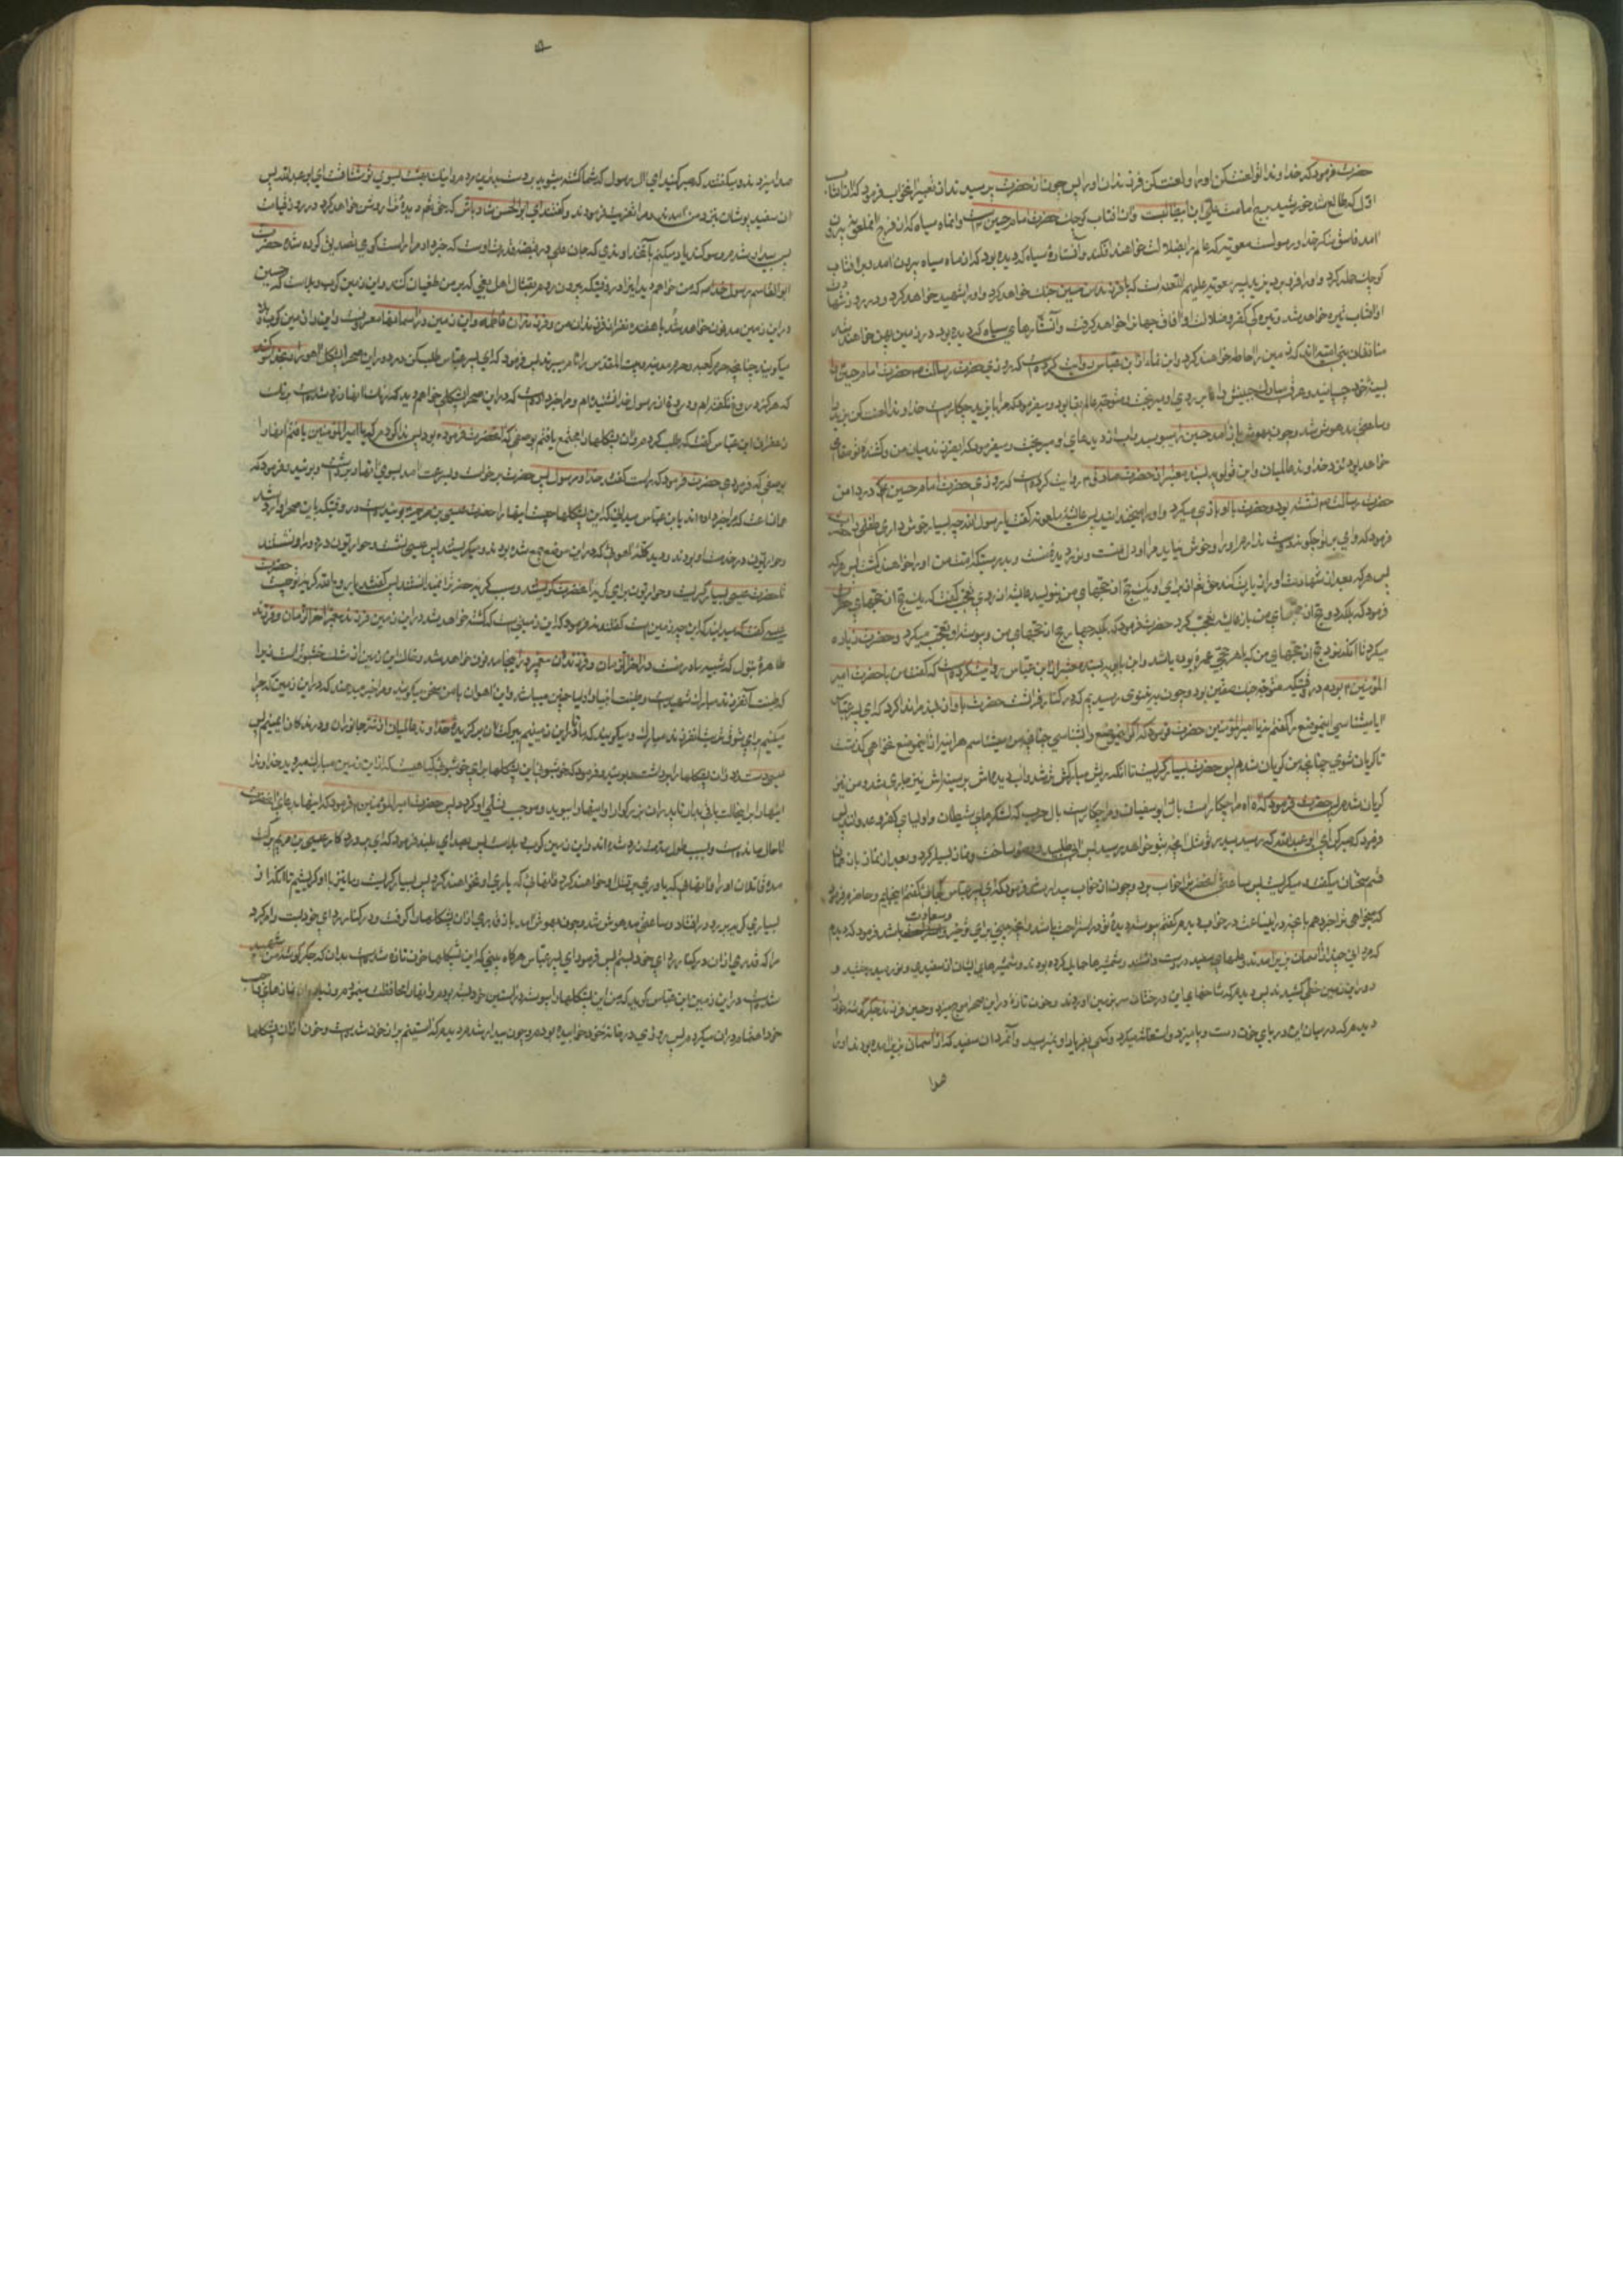 حضرت فرمود که خداوندا تو لعنت کن او را و لعنت کن فرزندان او را پس چون از حضرت پرسیدند از تعبیر این خواب فرمود که آن آفتاب
اول که طالع شد خورشید برج امامت علی ابن ابیطالب است و آن آفتاب کوچک حضرت امام حسین است و آن ماه سیاه که از فرج آن ملعونه بیرون
آمد فاسق منکر خدا و رسول است معویه که عالم را بضلالت خواهند افکند و آن ستاره سیاه که دیده بود که از ماه سیاه بیرون آمد و بر آفتاب
کوچک حمله کرد و او را فرو برد یزید پسر معویه علیهم اللعنه است که با فرزندم حسین جنک خواهد کرد و او را شهید خواهد کرد و در روز شهادت
او آفتاب تیره خواهد شد و تیره کی کفر و ضلالت او آفاق جهان را خواهد کرفت و آن ستارهای سیاه که دیده بود در زمین پهن خواهند شد
منافقان بنی امیه اند که زمین را احاطه خواهند کرد و ابن نما از ابن عباس روایت کرده است که روزی حضرت رسالت حضرت امام حسین را
بسینه خود چسبانید و عرق مبارک جبینش
و ساعتی مدهوش شد و چون بهوش باز آمد حسین را میبوسید و آب از دیدهای او میریخت و میفرمود که ای فرزند میان من و کشنده تو مقامی
خواهد بود نزد خداوند عالمیان و ابن قولویه بسند معتبر از حضرت صادق روایت کرده است که روزی حضرت امام حسین در دامن
حضرت رسالت نشسته بود و حضرت با او بازی میکرد و او را میخندانید پس عایشه ملعونه کفت یا رسول الله چه بسیار خوش داری این طفل را حضرت
فرمود که وای بر تو چکونه دوست ندارم او را و خوش نیاید مرا و او میوه دل منست و نور دیده منست و بدرستیکه امت من او را خواهند کشت پس هر که
پس هر که بعد از شهادت او را زیارت کند حق تعالی برای او یک حج از حجهای من بنویسد عایشه از روی تعجب کفت که یک حج از حجهای تو حضرت
فرمود که بلکه دو حج از حجهای من باز عایشه تعجب کرد حضرت فرمود که بلکه چهار حج از حجهای من و پیوسته او تعجب میکرد و حضرت زیاده
میکرد تا آنکه نود حج از حجهای من که با هر حجی عمره بوده باشد و ابن بابویه بسند معتبر از ابن عباس روایت کرده است که کفت من با حضرت امیر
المؤمنین بودم در وقتیکه متوجه جنک صفین بود و چون به نینوی رسیدیم که در کنار فراتست حضرت بآواز بلند مرا ندا کرد که ای پسر عباس
آیا میشناسی این موضع را کفتم نه یا امیر المؤمنین حضرت فرمود که اکر این موضع را بشناسی چنانچه من میشناسم هر آینه از این موضع نخواهی کذشت
تا کریان شوی چنانچه من کریان شدم پس حضرت بسیار کریست تا آنکه ریش مبارکش تر شد و آب دیده اش بر سینه اش نیز جاری شد و من نیز
کریان شدم پس حضرت فرمود که آه آه مرا چکار است با آل ابوسفیان و مرا چکار است با آل حرب که لشکرهای شیطان و اولیای کفر و عدوانند پس
فرمود که صبر کن ای ابو عبدالله که رسید بپدر تو مثل آنچه بتو خواهد رسید پس آبی طلبید و وضو ساخت و نماز بسیار کرد و بعد از نماز باز همان
قسم سخنان میکفت و میکریست پس ساعتی آنحضرت را خواب برد و چون از خواب بیدار شد فرمود که ای پسر عباس کجائی کفتم اینجایم و حاضرم فرمود
که میخواهی ترا خبر دهم بآنچه در این ساعت در خواب دیدم کفتم پیوسته دیده تو در استراحت باشد و آنچه بینی برای تو خیر و سعادت باشد فرمود که دیدم
که مردی چند از آسمان بزیر آمدند و علمهای سفید در دست داشتند و شمشیرها حمایل کرده بودند و شمشیرهای ایشان از سفیدی و نور میدرخشید و
دور این زمین خطی کشیدند پس دیدم که شاخهای این درختان سر بزمین آوردند و خون تازه در این صحرا موج میزد و حسین فرزند جکرکوشه خود را
دیدم که در میان این دریای خون دست و پا میزد و استغاثه میکرد و کسی بفریاد او نمیرسید و آن مردان سفید که از آسمان بزیر آمده بودند او را
صدا
صدا میزدند و میکفتند که صبر کنید ای آل رسول که شما کشته میشوید بر دست بدترین مردم و اینک بهشت بسوی تو مشتاقست ای ابو عبدالله پس
آن سفید پوشان نزد من آمدند و مرا تعزیت فرمودند و کفتند ای ابوالحسن شاد باش که حق تعالی دیده ترا روشن خواهد کرد در روز قیامت
پس بیدار شدم و سوکند یاد میکنم بآن خداوندی که جان علی در قبضه قدرت اوست که خبر داد مرا راست کوی تصدیق کرده شده حضرت
ابوالقاسم رسول خدا که من خواهم دید این را در وقتیکه بیرون روم بقتال اهل بغی که بر من طغیان کنند و این زمین کرب و بلاست که حسین
در این زمین مدفون خواهد شد با هفده نفر از فرزندان من و فرزندان فاطمه و این زمین در آسمانها معروفست و این را زمین کرب و بلا
میکویند چنانچه حرم کعبه و حرم مدینه و بیت المقدس را نام میبرند پس فرمود که ای پسر عباس طلب کن در دور این صحرا پشکل آهو را و بخدا سوکند
که هرکز دروغ نکفته ام و دروغ از رسول خدا نشنیده ام و مرا خبر داده است که در این صحرا پشکلی خواهم دید که رنک آنها زرد شده است برنک
زعفران ابن عباس کفت که طلب کردم و آن پشکلها را مجتمع یافتم بوصفی که آنحضرت فرموده بود پس ندا کردم که یا امیر المؤمنین یافتم آنها را
بوصفی که فرمودی حضرت فرمود که راست کفته خدا و رسول پس حضرت برخواست و بسرعت آمد بسوی آنها و برداشت و بوئید و فرمود که
همانست که مرا خبر داده اند یا ابن عباس میدانی که این پشکلها چیست اینها را حضرت عیسی بن مریم بوئیده است در وقتیکه باین صحرا وارد شد
حواریون در خدمت او بودند و دید کله آهوئی که در این موضع جمع شده بودند و میکریستند پس عیسی نشست و حواریون در دور او نشستند
تا حضرت عیسی بسیار کریست و حواریون برای کریه آنحضرت کریستند و سبب کریه حضرت را نمیدانستند پس کفتند یا روح الله کریه تو چیست حضرت
عیسی کفت که میدانید که این چه زمین است کفتند نه فرمود که این زمینی است که کشته خواهد شد در این زمین فرزند پیغمبر آخر الزمان و فرزند
طاهره بتول که شبیه مادر منست و آخر الزمان و فرزندان پیغمبر در اینجا مدفون خواهد شد و خاک این زمین از مشک خوشبوتر است زیرا
که طینت آن فرزند مبارک شهید است و طینت انبیا و اولیا چنین میباشد و این آهوان با من سخن میکویند و مرا خبر میدهند که در این زمین که چرا
میکنیم برای شوق تربت آن فرزند مبارک و میکویند که تا در این زمینیم ببرکت آن برکزیده خداوند عالمیان از شر جانوران و درندکان ایمنیم پس
عیسی دست دراز کرد و از آن پشکلها برداشت و بوئید و فرمود که خوشبوئی این پشکلها برای خوشبوئی کیاهیست که از این زمین مبارک میروید خداوندا
اینها را بر این حالت باقی بدار تا پدر آن بزرکوار اینها را ببوید و موجب تسلی او کردد پس حضرت امیر المؤمنین فرمود که اینها بدعای آنحضرت
تا حال مانده است و بسبب طول مدت زرد شده اند و این زمین کرب و بلاست پس بصدای بلند فرمود که ای پروردکار عیسی بن مریم برکت
مده قاتلان او را و آنهائی که یاوری بر قتل او خواهند کرد و آنهائی که یاری او نخواهند کرد پس بسیار کریست و ما نیز با او کریستیم تا آنکه از
بسیاری کریه برو در افتاد و ساعتی مدهوش شد و چون بهوش آمد باز قدری از آن پشکلها را کرفت و در کنار ردای خود بست و امر کرد
مرا که قدری از آن در کنار ردای خود بستم پس فرمود ای پسر عباس هرکاه ببینی که این پشکلها خون تازه شده است بدان که جکرکوشه من شهید
شده است در این زمین ابن عباس کوید که من این پشکلها را پیوسته در آستین خود بسته بودم و آنها را محافظت مینمودم و زیاده از نمازهای واجب
خود اعتنا در آن میکردم پس روزی در خانه خود خوابیده بودم و چون بیدار شدم دیدم که آستینم پر از خون شده است و خون از آن پشکلها